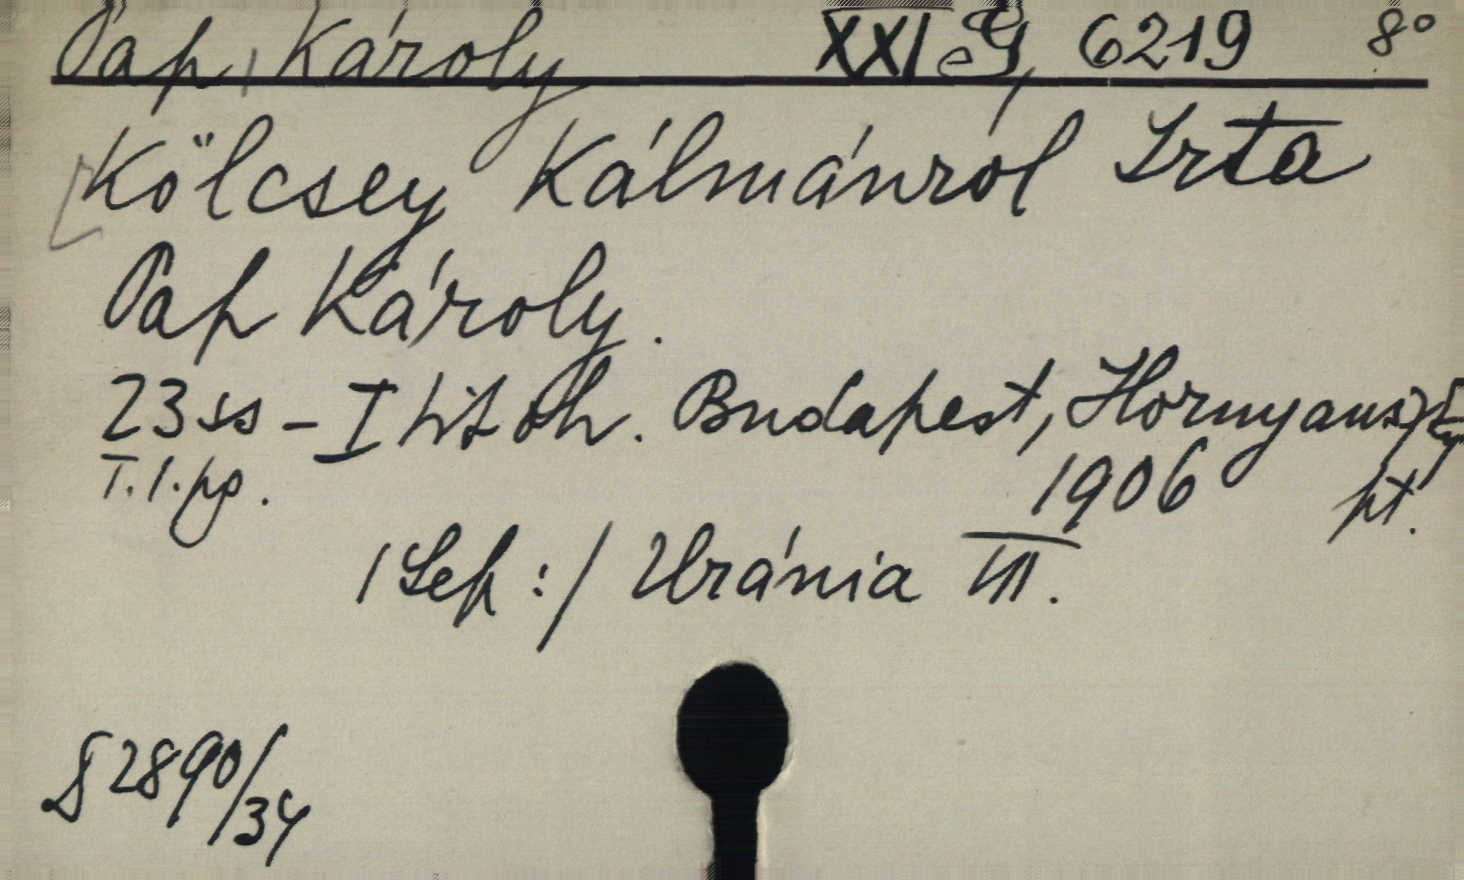 Pap, Károly XXI 6219 8°
[Kölcsey Kálmánról Irta
Pap Károly.
23 ss - I Budapest, Hornyánszky
T. 1. pg. 1906
/Sep:/ Uránia VII.
2890/34